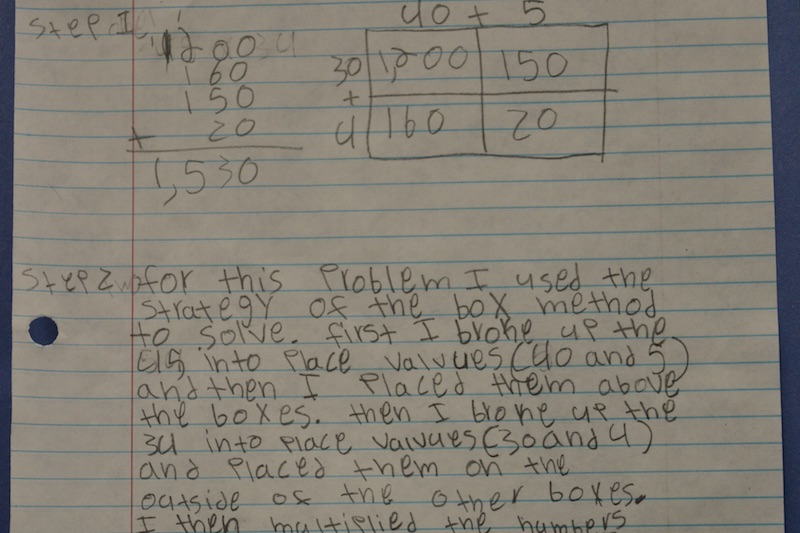 40 + 5
Step 1
1,200
160
150
+ 20
1,530
30 1,200 150
+
4 160 20
Step 2 for this Problem I used the
strategy of the box method
to solve. first I broke up the
45 into Place valvues (40 and 5)
and then I Placed them above
the boxes. then I broke up the
34 into Place valvues (30 and 4)
and Placed them on the
outside of the other boxes.
I then multiplied the numbers